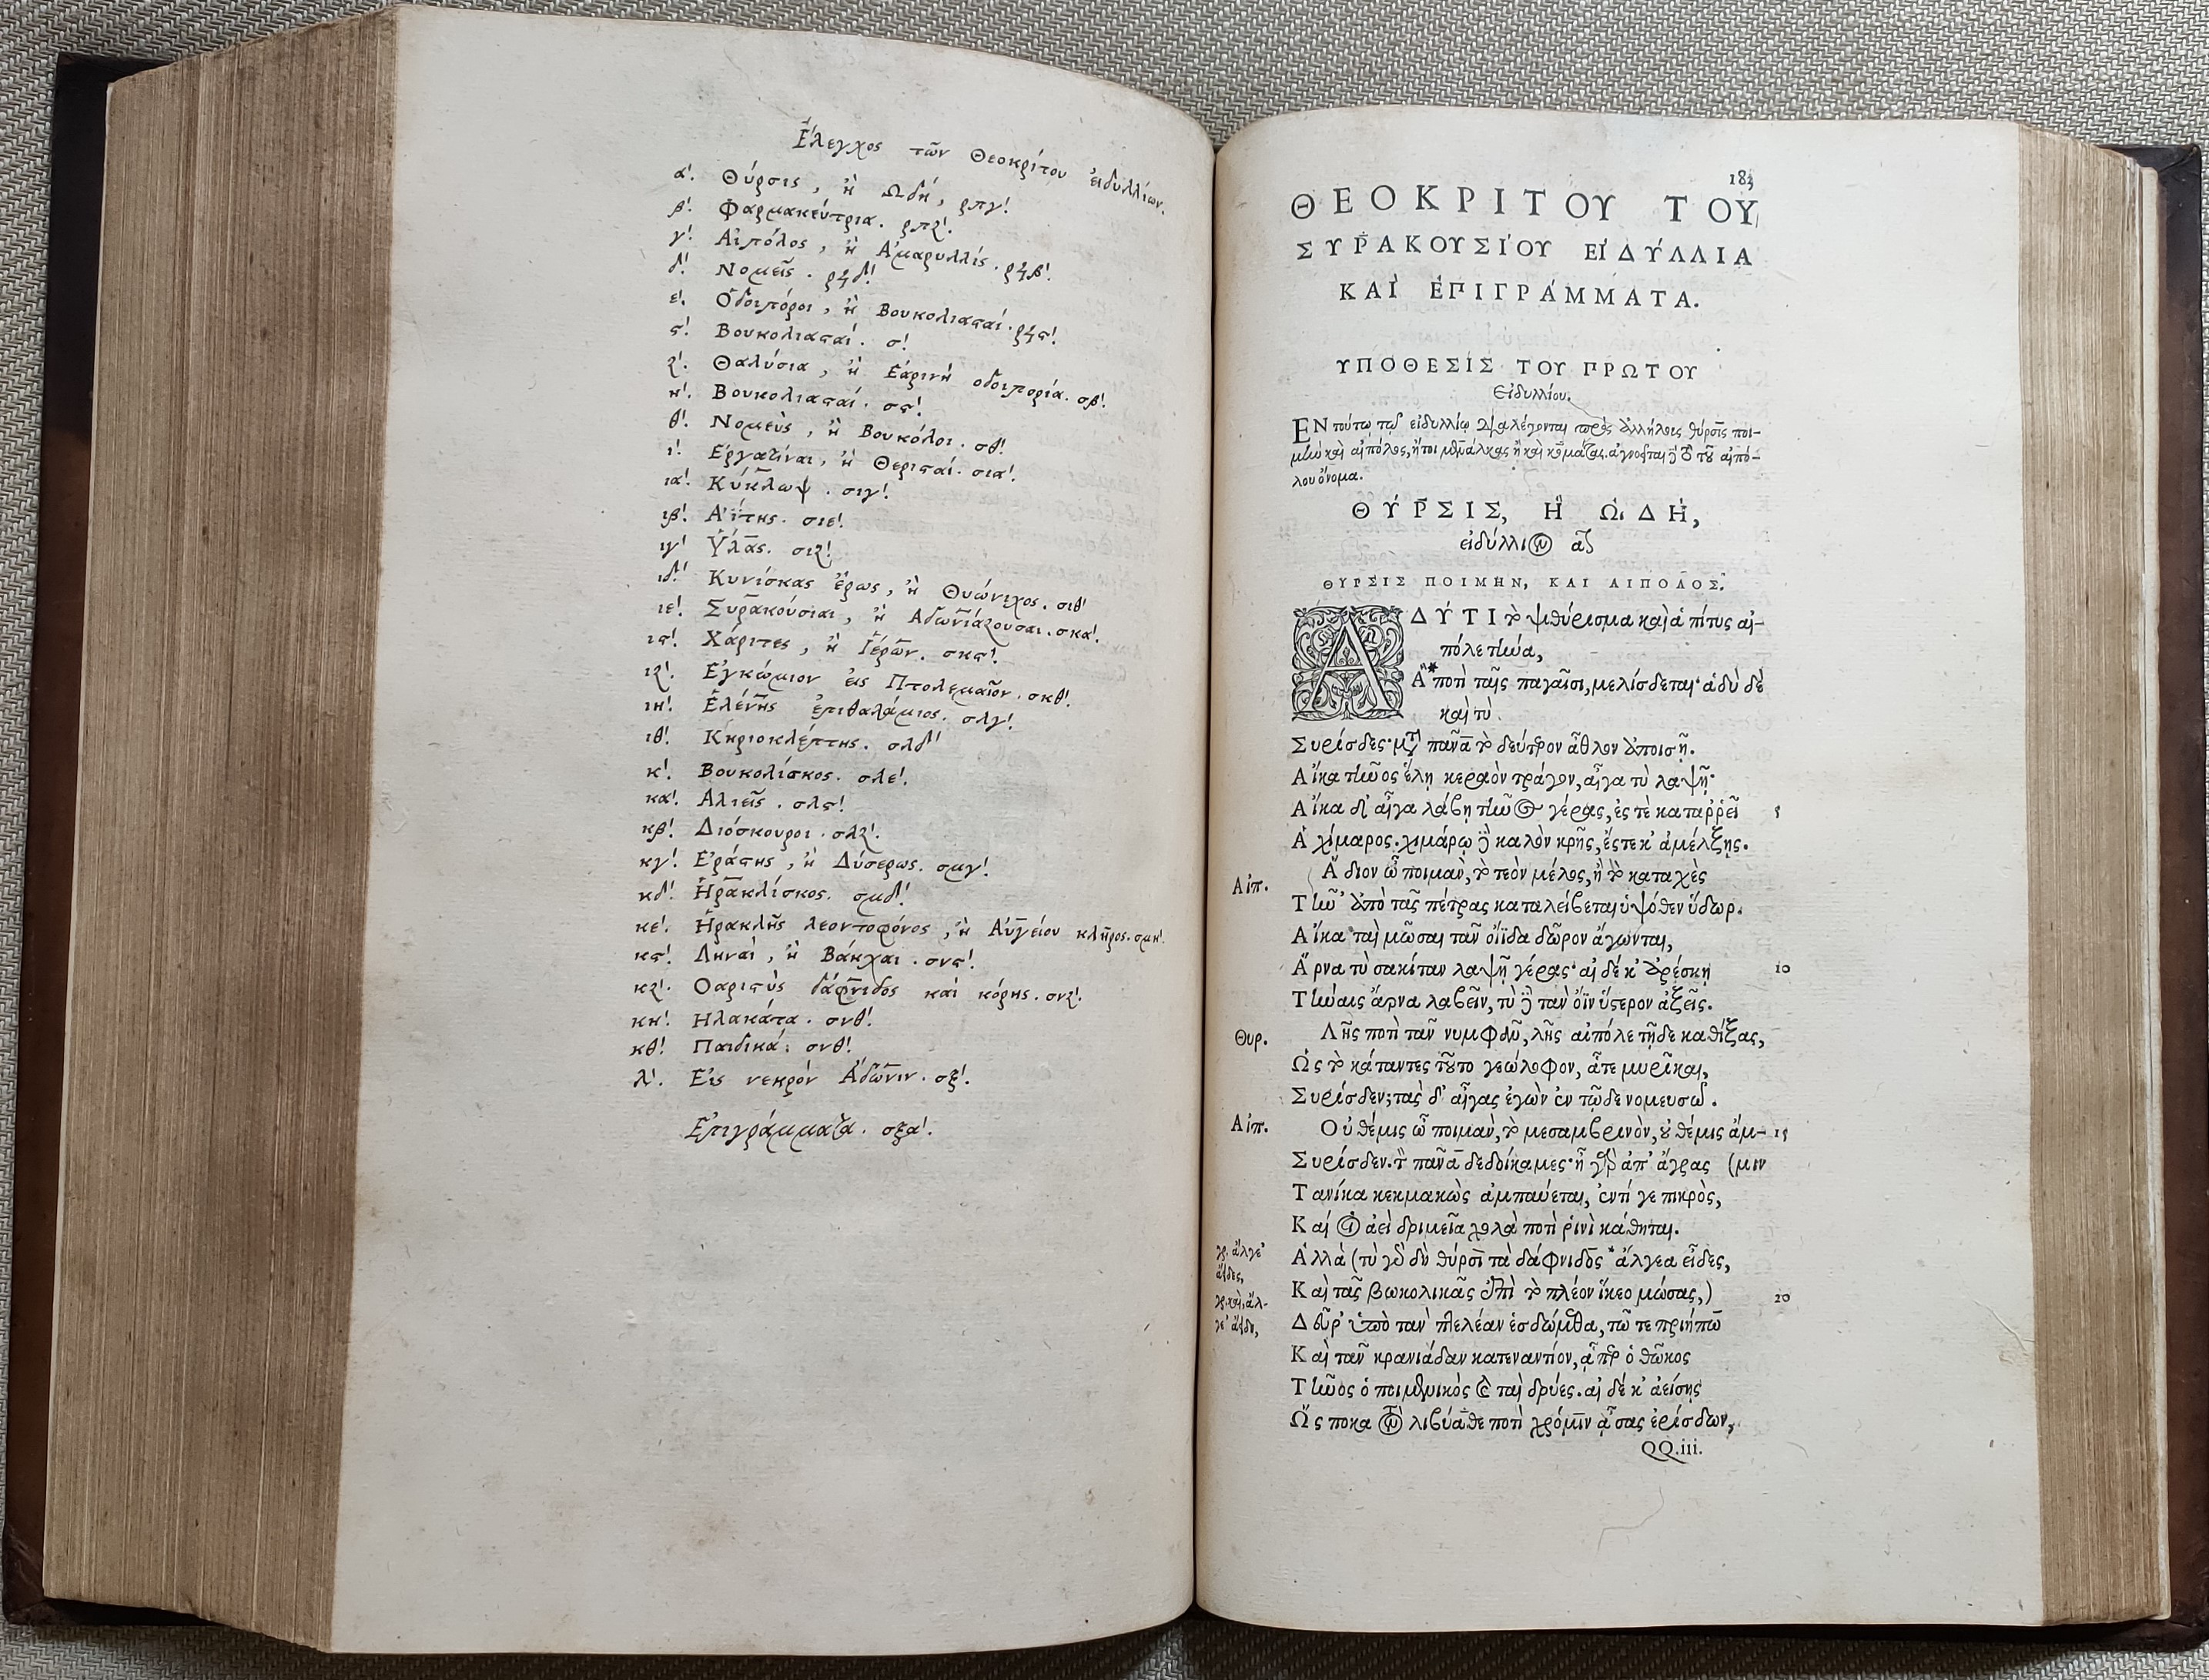 Ἔλεγχος τῶν Θεοκρίτου εἰδυλλίων.
α'. Θύρσις, ἢ Ωδή, ρπγ'.
β'. Φαρμακεύτρια. ρπζ'.
γ'. Αἰπόλος, ἢ Αμαρυλλίς. ρϟβ'.
δ'. Νομεῖς. ρϟδ'.
ε'. Οδοιπόροι, ἢ Βουκολιαϛαί. ρϟϛ'.
ϛ'. Βουκολιαϛαί. σ'.
ζ'. Θαλύσια, ἢ Εαρινὴ οδοιπορία. σβ'.
η'. Βουκολιαϛαί. σϛ'.
θ'. Νομεὺς, ἢ Βουκόλοι. σθ'.
ι'. Εργατίναι, ἢ Θεριϛαί. σια'.
ια'. Κύκλωψ. σιγ'.
ιβ'. Αΐτης. σιε'.
ιγ'. Υ῾λας. σιζ'.
ιδ'. Κυνίσκας ἔρως, ἢ Θυώνιχος. σιθ'
ιε'. Συρακούσιαι, ἢ Αδωνιάζουσαι. σκα'.
ιϛ'. Χάριτες, ἢ Ιέρων. σκϛ'.
ιζ'. Εγκώμιον εἰς Πτολεμαῖον. σκθ'.
ιη'. Ελένης ἐπιθαλάμιος. σλγ'.
ιθ'. Κηριοκλέπτης. σλδ'
κ'. Βουκολίσκος. σλε'.
κα'. Αλιεῖς. σλϛ'.
κβ'. Διόσκουροι. σλζ'.
κγ'. Εραϛὴς, ἢ Δύσερως. σμγ'.
κδ'. Ηρακλίσκος. σμδ'.
κε'. Ηρακλῆς λεοντοφόνος, ἢ Αὐγείου κλῆρος. σμη'.
κϛ'. Ληναὶ, ἢ Βάκχαι. σνϛ'.
κζ'. Οαριϛὺς δάφνιδος καὶ κόρης. σνζ'.
κη'. Ηλακάτα. σνθ'.
κθ'. Παιδικά. σνθ'.
λ'. Εἰς νεκρὸν Αδωνιν. σξ'.
Επιγράμματα. σξα'.
183
ΘΕΟΚΡΙΤΟΥ ΤΟΥ
ΣΥΡΑΚΟΥΣΙΌΥ ΕΙΔΎΛΛΙΑ
ΚΑῚ ἘΠΙΓΡΆΜΜΑΤΑ.
ΥΠΟΘΕΣΙΣ ΤΟΥ ΠΡΩΤΟΥ
Εἰδυλλίου.
ΕΝ τούτῳ τῷ εἰδυλλίῳ διαλέγονται πρὸς ἀλλήλοις θύρσις ποι-
μὴν καὶ αἰπόλος, ἤτοι μενάλκας ἢ καὶ κομάτας. ἀγνοεῖται γὸ τὸ τοῦ αἰπό-
λου ὄνομα.
ΘΎΡΣΙΣ, Ἢ ΩΙΔΗ,
εἰδύλλιον α
ΘΥΡΣΙΣ ΠΟΙΜΗΝ, ΚΑΙ ΑΙΠΟΛΟΣ.
ΑΔΎΤΙ τὸ ψιθύρισμα καὶ ἁ πίτυς αἰ-
πόλε τήνα,
Ἃ ποτὶ ταῖς παγαῖσι, μελίσδεται· ἁδὺ δὲ
καὶ τὺ
Συρίσδες· μετὰ πᾶνα τὸ δεύτερον ἆθλον ἀποισῇ.
Αἴκα τῆνος ἕλῃ κεραὸν τράγον, αἶγα τὺ λαψῇ·
Αἴκα δ' αἶγα λάβῃ τῆνος γέρας, ἐς τὲ καταρρεῖ 5
Ἁ χίμαρος. χιμάρῳ δὲ καλὸν κρῆς, ἔστε κ' ἀμέλξῃς.
Αἰπ. Ἅδιον ὦ ποιμὰν, τὸ τεὸν μέλος, ἢ τὸ καταχὲς
Τῆν' ἀπὸ τᾶς πέτρας καταλείβεται ὑψόθεν ὕδωρ.
Αἴκα ταὶ μῶσαι τὰν οἴϊδα δῶρον ἄγωνται,
Ἄρνα τὺ σακίταν λαψῇ γέρας· αἰ δέ κ' ἀρέσκῃ 10
Τήναις ἄρνα λαβεῖν, τὺ δὲ τὰν ὄϊν ὕϛερον ἀξεῖς.
Θυρ. Λῆς ποτὶ τᾶν νυμφᾶν, λῆς αἰπόλε τῇδε καθίξας,
Ὡς τὸ κάταντες τοῦτο γεώλοφον, ἇτε μυρῖκαι,
Συρίσδεν; τὰς δ' αἶγας ἐγὼν ἐν τῷδε νομευσῶ.
Αἰπ. Οὐ θέμις ὦ ποιμὰν, τὸ μεσαμβρινὸν, οὐ θέμις ἄμ- 15
Συρίσδεν. τὸν πᾶνα δεδοίκαμες· ἦ γὰρ ἀπ' ἄγρας (μιν
Τανίκα κεκμακὼς ἀμπαύεται, ἐντί γε πικρὸς,
Καί οἱ ἀεὶ δριμεῖα χολὰ ποτὶ ῥινὶ κάθηται.
Ἀλλὰ (τὺ γὰρ δὴ θύρσι τὰ δάφνιδος *ἄλγεα εἶδες,
Καὶ τᾶς βωκολικᾶς ἐπὶ τὸ πλέον ἵκεο μώσας,) 20
Δεῦρ' ὑπὸ τὰν πτελέαν ἑσδώμεθα, τῶ τε πριήπω
Καὶ τᾶν κρανιάδαν κατεναντίον, ᾇπερ ὁ θῶκος
Τῆνος ὁ ποιμενικὸς καὶ ταὶ δρύες. αἰ δέ κ' ἀείσῃς
Ὥς ποκα τὸν λιβύαθε ποτὶ χρόμιν ᾆσας ἐρίσδων,
QQ.iii.